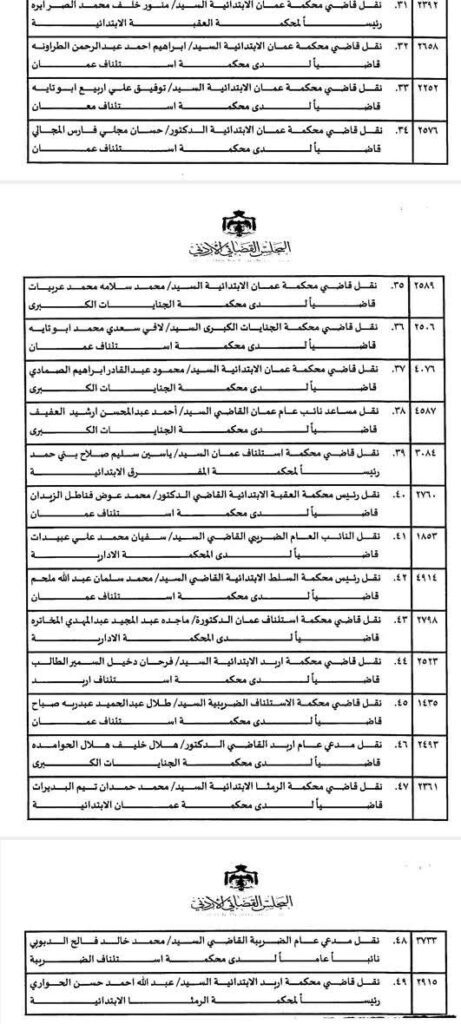 ٢٣٩٢ ٣١. نقل قاضي محكمة عمان الابتدائية السيد/ منور خلف محمد الصرايره
رئيساً لمحكمة العقبة الابتدائية
٢٦٥٨ ٣٢. نقل قاضي محكمة عمان الابتدائية السيد/ ابراهيم احمد عبدالرحمن الطراونه
قاضياً لدى محكمة استئناف عمان
٢٢٥٢ ٣٣. نقل قاضي محكمة عمان الابتدائية السيد/ توفيق علي اربيع ابو تايه
قاضياً لدى محكمة استئناف معان
٢٥٧٦ ٣٤. نقل قاضي محكمة عمان الابتدائية الدكتور/ حسان مجلي فارس المجالي
قاضياً لدى محكمة استئناف عمان
المجلس القضائي الاردني
٢٥٨٩ ٣٥. نقل قاضي محكمة عمان الابتدائية السيد/ محمد سلامه محمد عربيات
قاضياً لدى محكمة الجنايات الكبرى
٢٥٠٦ ٣٦. نقل قاضي محكمة الجنايات الكبرى السيد/ لافي سعدي محمد ابو تايه
قاضياً لدى محكمة استئناف عمان
٤٠٧٦ ٣٧. نقل قاضي محكمة عمان الابتدائية السيد/ محمود عبدالقادر ابراهيم الصمادي
قاضياً لدى محكمة الجنايات الكبرى
٤٥٨٧ ٣٨. نقل مساعد نائب عام عمان القاضي السيد/ أحمد عبدالمحسن ارشيد العفيف
قاضياً لدى محكمة الجنايات الكبرى
٣٠٨٤ ٣٩. نقل قاضي محكمة استئناف عمان السيد/ ياسين سليم صلاح بني حمد
رئيساً لمحكمة المفرق الابتدائية
٢٧٦٠ ٤٠. نقل رئيس محكمة العقبة الابتدائية القاضي الدكتور/ محمد عوض فناطل الزيدان
قاضياً لدى محكمة استئناف عمان
١٨٥٣ ٤١. نقل النائب العام الضريبي القاضي السيد/ سفيان محمد علي عبيدات
قاضياً لدى المحكمة الادارية
٤٩١٤ ٤٢. نقل رئيس محكمة السلط الابتدائية القاضي السيد/ محمد سلمان عبد الله ملحم
قاضياً لدى محكمة استئناف عمان
٢٧٩٨ ٤٣. نقل قاضي محكمة استئناف عمان الدكتورة/ ماجده عبد المجيد عبدالمهدي المخاتره
قاضياً لدى المحكمة الادارية
٢٥٢٣ ٤٤. نقل قاضي محكمة اربد الابتدائية السيد/ فرحان دخيل السمير الطالب
قاضياً لدى محكمة استئناف اربد
١٤٣٥ ٤٥. نقل قاضي محكمة الاستئناف الضريبية السيد/ طلال عبدالحميد عبدربه صباح
قاضياً لدى محكمة استئناف عمان
٢٤٩٣ ٤٦. نقل مدعي عام اربد القاضي الدكتور/ هلال خليف هلال الحوامده
قاضياً لدى محكمة الجنايات الكبرى
٢٣٦١ ٤٧. نقل قاضي محكمة الرمثا الابتدائية السيد/ محمد حمدان تيم البديرات
قاضياً لدى محكمة عمان الابتدائية
المجلس القضائي الاردني
٣٧٣٣ ٤٨. نقل مدعي عام الضريبة القاضي السيد/ محمد خالد فالح الدبوبي
نائباً عاماً لدى محكمة استئناف الضريبة
٢٩١٥ ٤٩. نقل قاضي محكمة اربد الابتدائية السيد/ عبد الله احمد حسن الحواري
رئيساً لمحكمة الرمثا الابتدائية